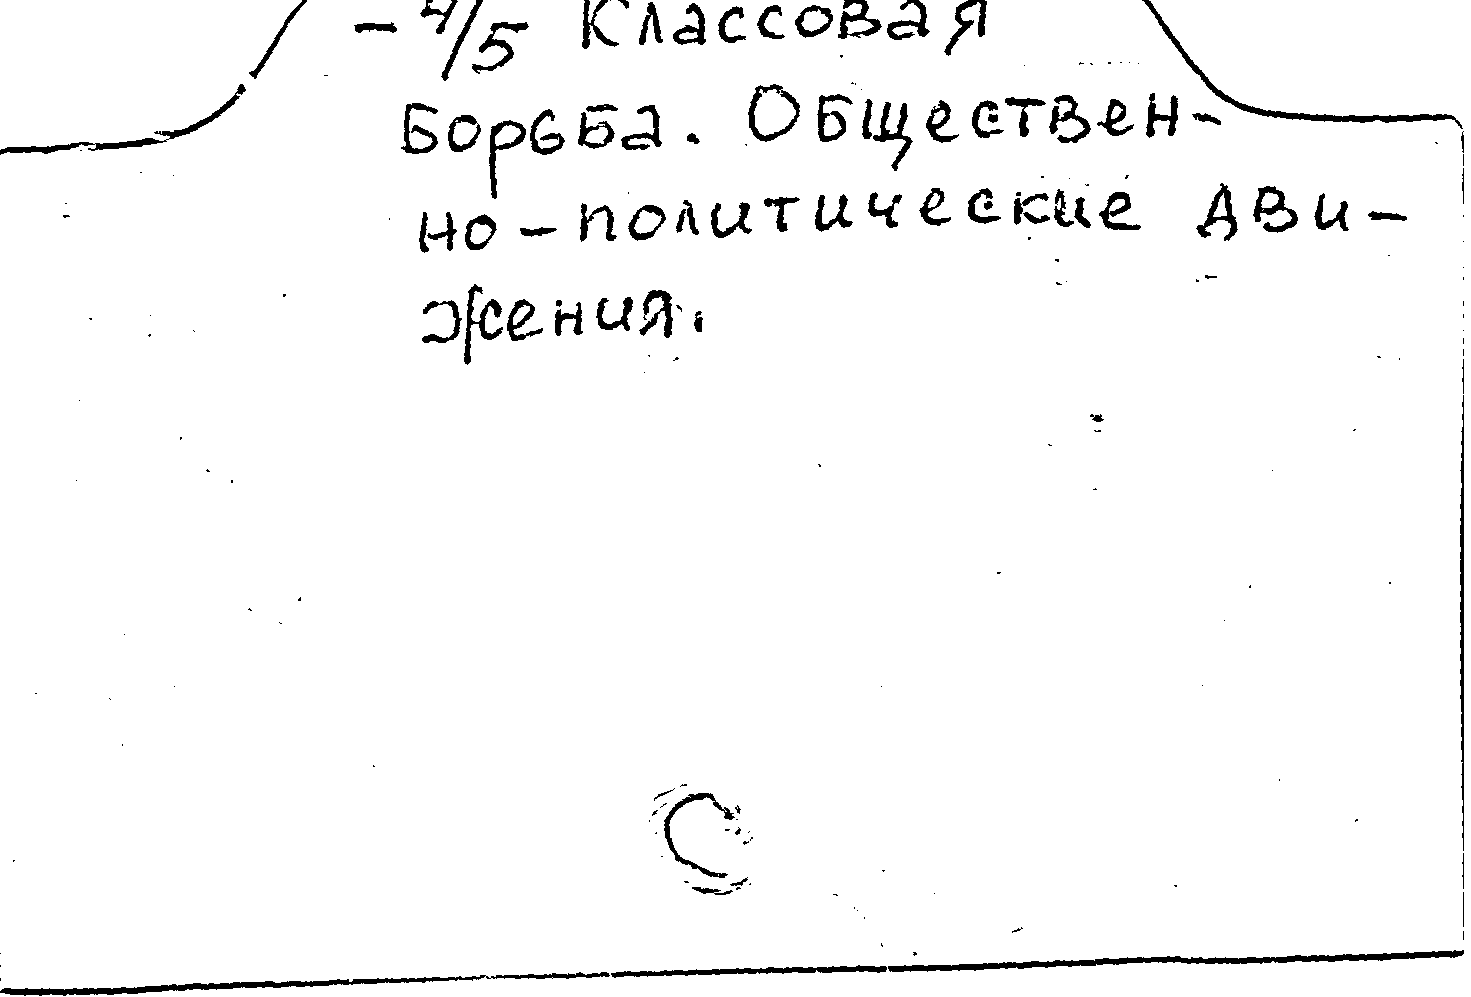 - 4/5 Классовая
борьба. Обществен-
но-политические дви-
жения.